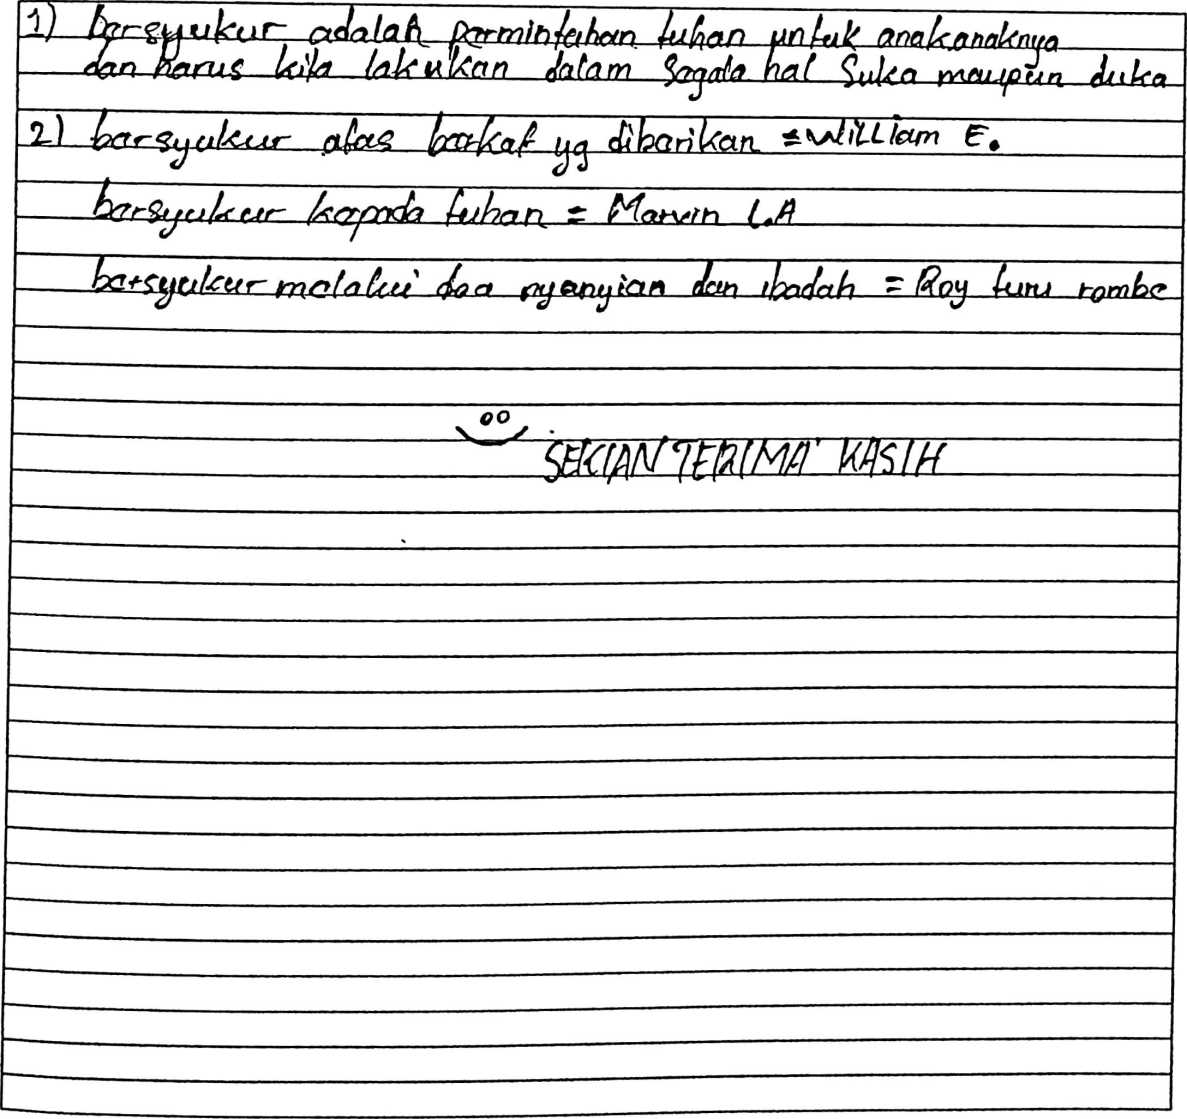 1) bersyukur adalah permintahan tuhan untuk anakanaknya
dan harus kita lakukan dalam segala hal suka maupun duka
2) bersyukur atas berkat yg diberikan = William E.
bersyukur kepada tuhan = Marvin L.A
bersyukur melalui doa nyanyian dan ibadah = Roy turu rombe
SEKIAN TERIMA KASIH